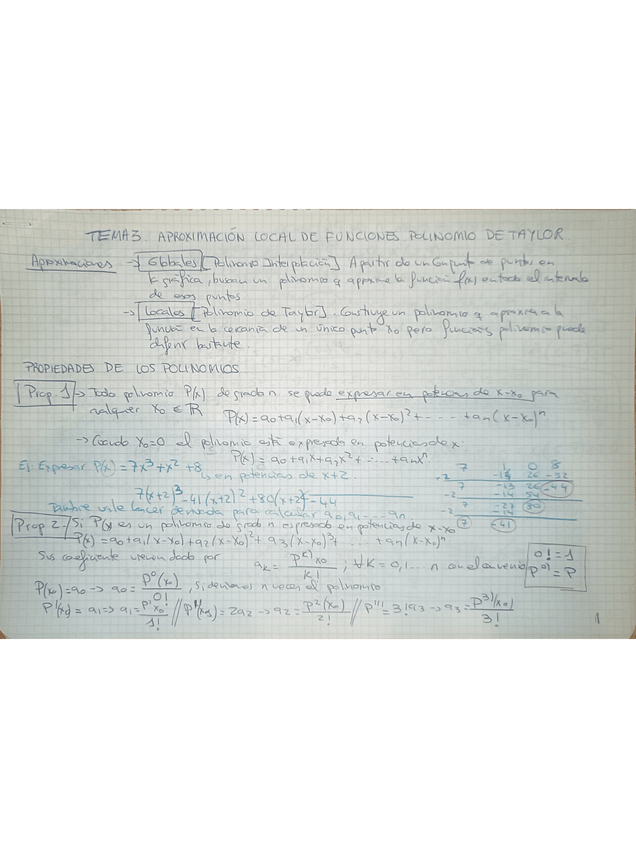 TEMA 3. APROXIMACIÓN LOCAL DE FUNCIONES. POLINOMIO DE TAYLOR
Aproximaciones → Globales [Polinomio Interpolación]. A partir de un conjunto de puntos en
la gráfica, buscan un polinomio q aproxime la función f(x) en todo el intervalo
de esos puntos
→ Locales [Polinomio de Taylor]. Construye un polinomio q aproxima a la
función en la cercanía de un único punto x₀ pero función y polinomio puede
diferir bastante.
PROPIEDADES DE LOS POLINOMIOS
Prop. 1 → Todo polinomio P(x) de grado n se puede expresar en potencias de x-x₀ para
cualquier x₀ ∈ ℝ
P(x) = a₀+a₁(x-x₀)+a₂(x-x₀)²+ ··· ··· +aₙ(x-x₀)ⁿ
→ Cuando x₀=0 el polinomio está expresado en potencias de x:
P(x) = a₀+a₁x+a₂x²+ ··· +aₙxⁿ
Ej: Expresar P(x) = 7x³+x²+8
↳ en potencias de x+2.
7(x+2)³-41(x+2)²+80(x+2)-44
7 1 0 8
-2 -14 26 -52
7 -13 26 -44
-2 -14 54
7 -27 80
-2 -14
7 -41
También vale hacer derivada para calcular a₀, a₁ ... aₙ
Prop 2 / Si P(x) es un polinomio de grado n expresado en potencias de x-x₀
P(x) = a₀+a₁(x-x₀)+a₂(x-x₀)²+a₃(x-x₀)³+ ··· +aₙ(x-x₀)ⁿ
Sus coeficiente vienen dado por
aₖ = Pᵏ⁾x₀ / k! ; ∀k = 0,1... n con el convenio
0! = 1
P⁰⁾ = P
P(x₀) = a₀ → a₀ = P⁰(x₀) / 0! , Si derivamos n veces el polinomio
P'(x₀) = a₁ → a₁ = P'x₀ / 1! // P''(x₀) = 2a₂ → a₂ = P²(x₀) / 2! // P''' = 3!a₃ → a₃ = P³⁾(x₀) / 3!
1